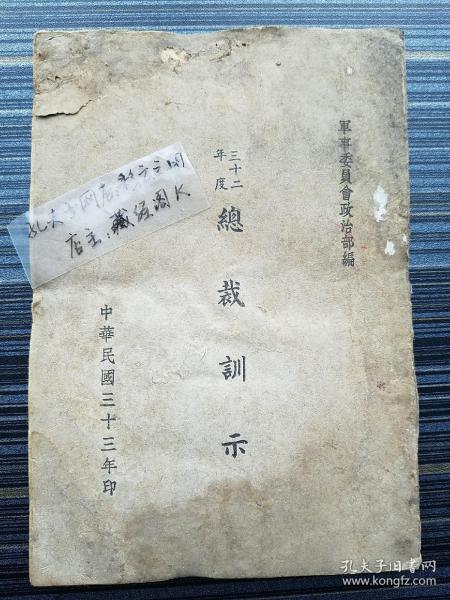 軍事委員會政治部編
三十二年度
總裁訓示
中華民國三十三年印
店主:藏经阁K
孔夫子旧书网
www.kongfz.com